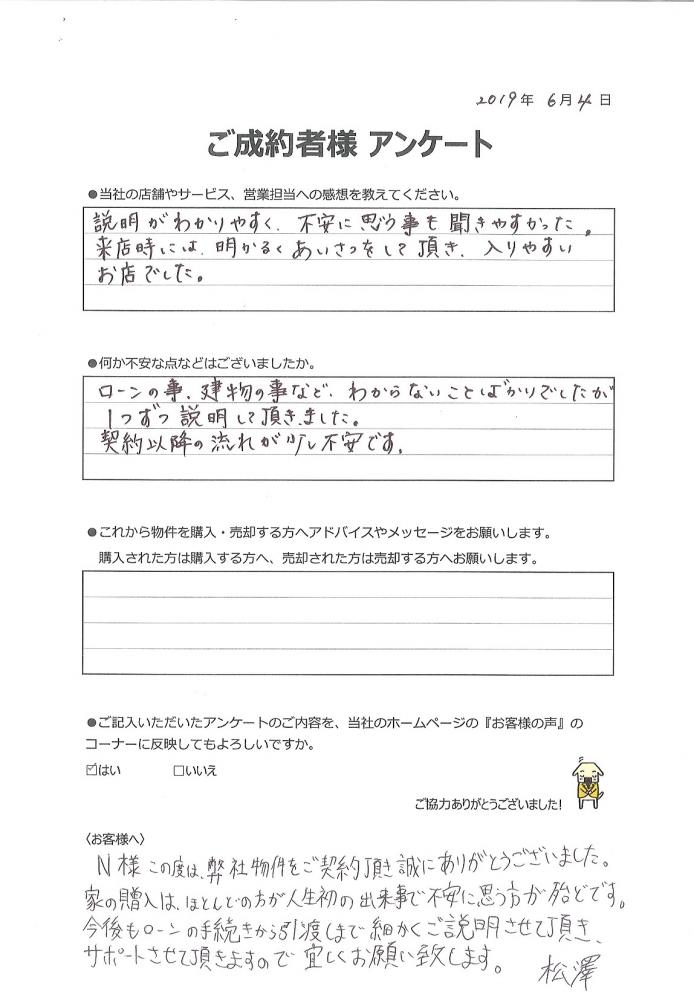 2019年 6月 4日
ご成約者様 アンケート
●当社の店舗やサービス、営業担当への感想を教えてください。
説明がわかりやすく、不安に思う事も聞きやすかった。
来店時には、明かるくあいさつをして頂き、入りやすい
お店でした。
●何か不安な点などはございましたか。
ローンの事、建物の事など、わからないことばかりでしたが
1つずつ説明して頂きました。
契約以降の流れが少し不安です。
●これから物件を購入・売却する方へアドバイスやメッセージをお願いします。
購入された方は購入する方へ、売却された方は売却する方へお願いします。
●ご記入いただいたアンケートのご内容を、当社のホームページの『お客様の声』の
コーナーに反映してもよろしいですか。
☑はい □いいえ
ご協力ありがとうございました!
〈お客様へ〉
N様 この度は、弊社物件をご契約頂き誠にありがとうございました。
家の贈入は、ほとんどの方が人生初の出来事で不安に思う方が殆どです。
今後もローンの手続きから引渡しまで細かくご説明させて頂き、
サポートさせて頂きますので宜しくお願い致します。 松澤